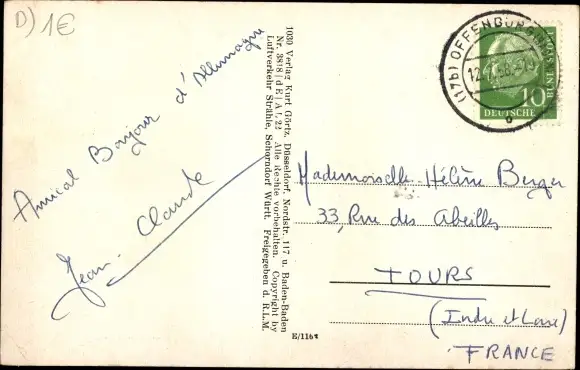 D) 1€
Amical Bonjour d'Allemagne
Jean-Claude
1030 Verlag Kurt Görtz, Düsseldorf, Nordstr. 117 u. Baden-Baden
Alle Rechte vorbehalten. Copyright by
Luftverkehr Strähle, Schorndorf Württ. Freigegeben d. R.L.M.
E/116
(17b) OFFENBURG
10
DEUTSCHE BUNDESPOST
Mademoiselle Hélène Berger
33, Rue des Abeilles
TOURS
(Indre et Loire)
FRANCE